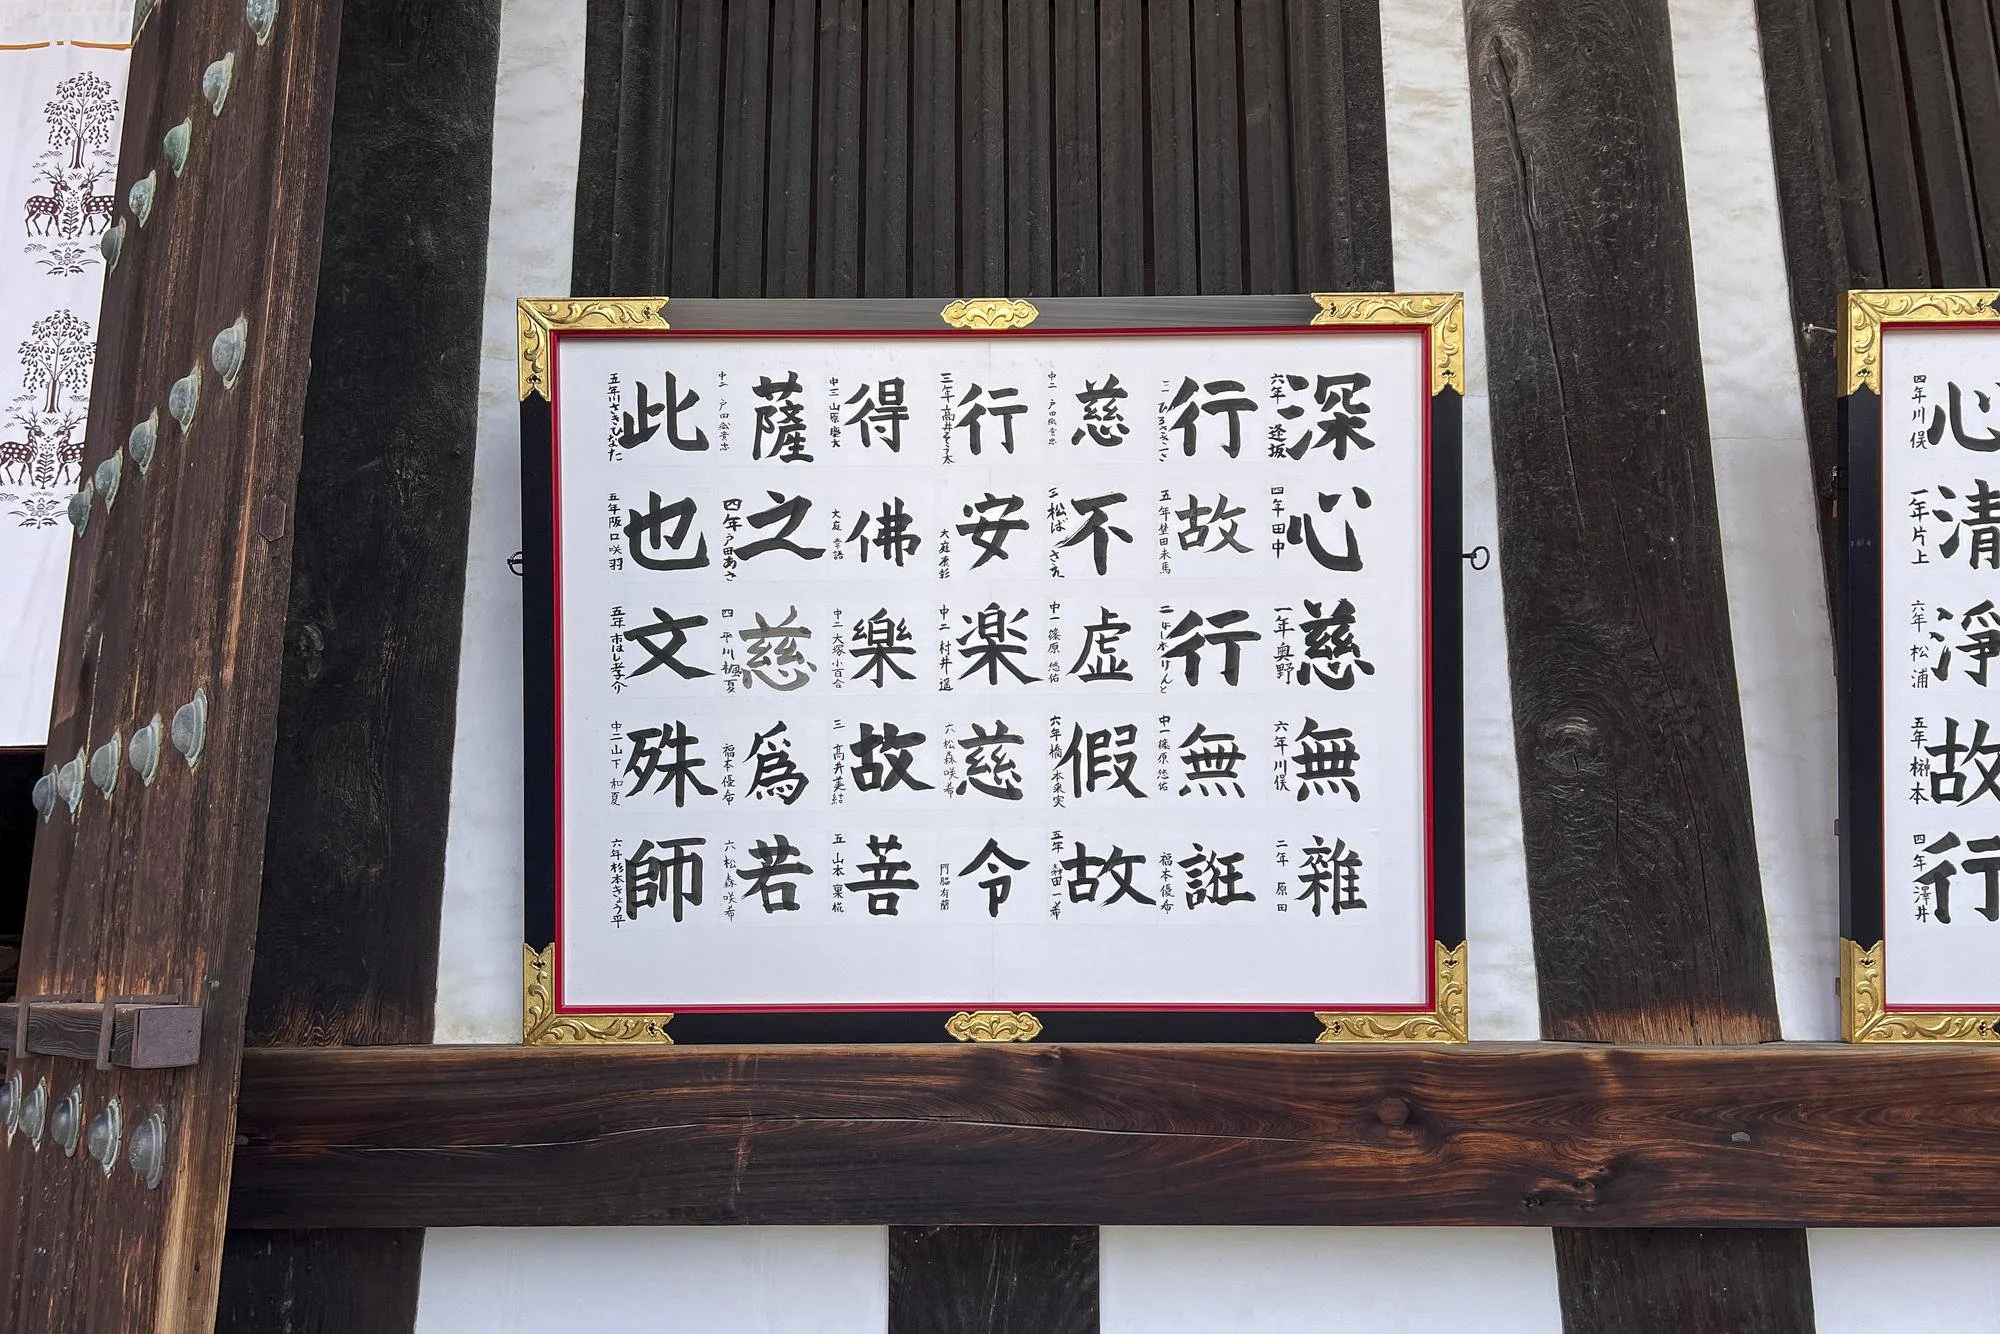 心清淨故行
四年川俣
一年片上
六年松浦
五年榊本
四年澤井
深心慈無雜
六年逢坂
四年田中
一年奥野
六年川俣
二年原田
行故行無誑
五年埜田未馬
二よし本けんと
中一篠原悠佑
福本優希
慈不虚假故
中二戸田
三松ばさえ
中一篠原悠佑
六年橋本来実
五年 田一希
行安楽慈令
三年高井そう太
大庭康彰
中二村井遥
六松森咲希
門脇有蘭
得佛樂故菩
中三山原慶大
大庭幸語
中二大塚小百合
三高井美結
五山本
薩之慈爲若
中二戸田
四年戸田あさ
四平川楓夏
福本優希
六松森咲希
此也文殊師
五年川さきひなた
五年阪口咲羽
五年市はし孝介
中二山下和夏
六年杉本きょう平